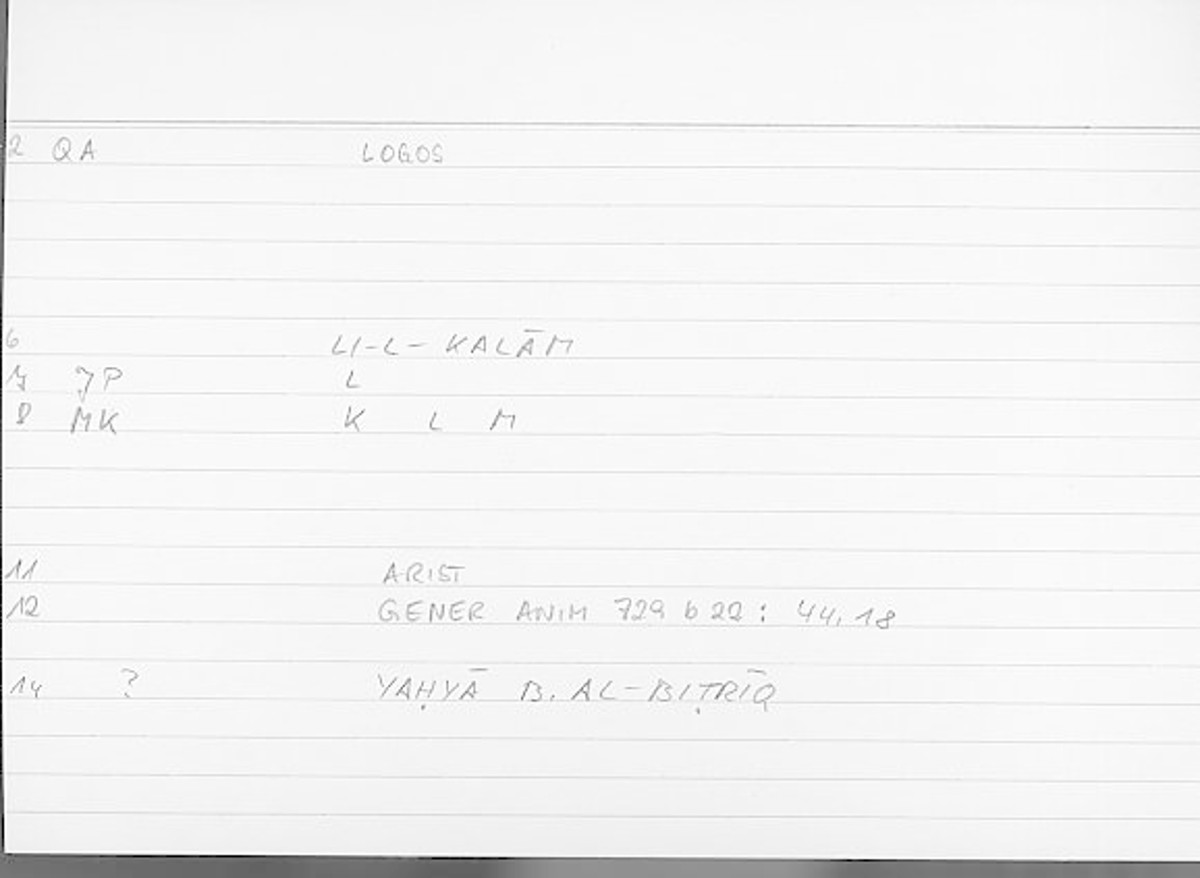 2 QA LOGOS
6 LI-L-KALĀM
7 JP L
8 MK K L M
11 ARIST
12 GENER ANIM 729 b 22 : 44,18
14 ? YAḤYĀ B. AL-BIṬRĪQ